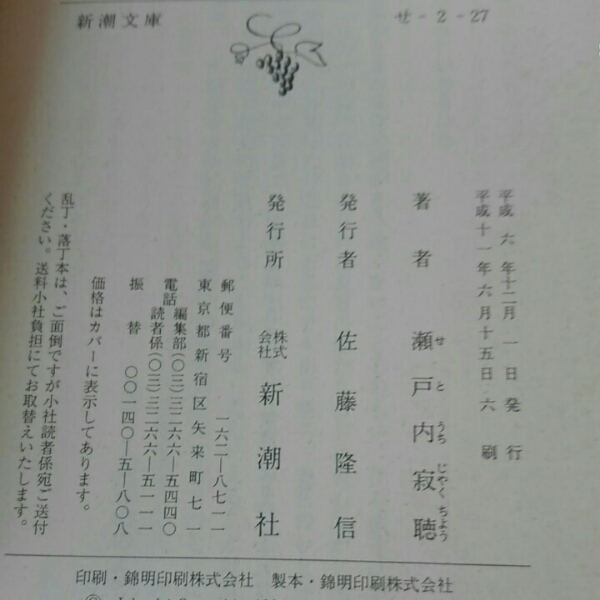 新潮文庫
せ-2-27
平成六年十二月一日発行
平成十一年六月十五日六刷
著者 瀬戸内寂聴
せとうちじゃくちょう
発行者 佐藤隆信
発行所 株式会社 新潮社
郵便番号 一六二―八七一一
東京都新宿区矢来町七一
電話 編集部(〇三)三二六六―五四四〇
読者係(〇三)三二六六―五一一一
振替 〇〇一四〇―五―八〇八
価格はカバーに表示してあります。
乱丁・落丁本は、ご面倒ですが小社読者係宛ご送付
ください。送料小社負担にてお取替えいたします。
印刷・錦明印刷株式会社 製本・錦明印刷株式会社